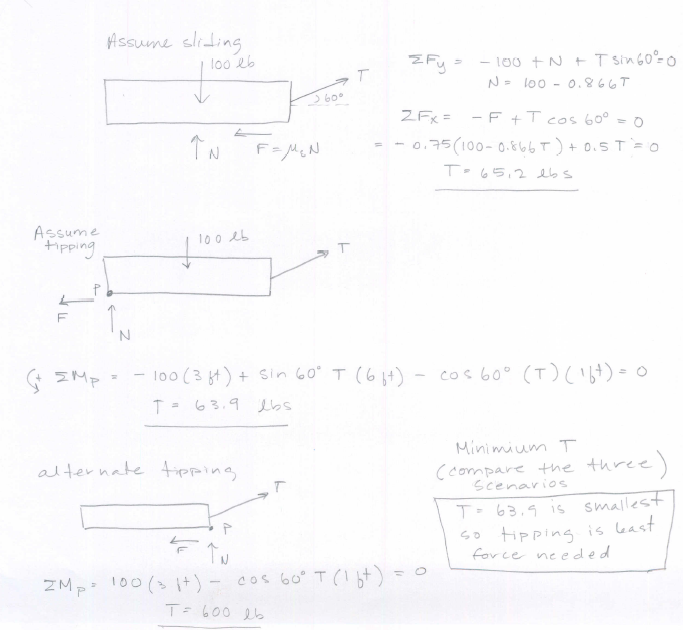 Assume sliding
100 lb
T
260°
N
F = μsN
ΣFy = -100 + N + T sin60° = 0
N = 100 - 0.866T
ΣFx = -F + T cos 60° = 0
= -0.75(100-0.866T) + 0.5T = 0
T = 65.2 lbs
Assume tipping
100 lb
T
P
F
N
+ ΣMp = -100(3 ft) + sin 60° T (6 ft) - cos 60° (T)(1 ft) = 0
T = 63.9 lbs
alternate tipping
T
P
F
N
ΣMp = 100(3 ft) - cos 60° T(1 ft) = 0
T = 600 lb
Minimium T
(compare the three)
scenarios
T = 63.9 is smallest
so tipping is least
force needed